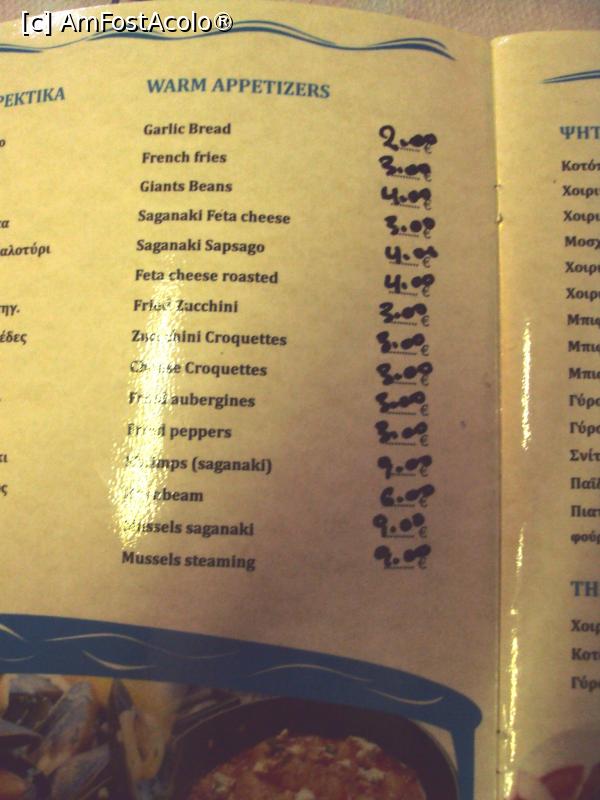 [c] AmFostAcolo®
ΡΕΚΤΙΚΑ
αλοτύρι
WARM APPETIZERS
Garlic Bread 2.00 €
French fries 3.00 €
Giants Beans 4.00 €
Saganaki Feta cheese 3.00 €
Saganaki Sapsago 4.00 €
Feta cheese roasted 4.00 €
Fried Zucchini 3.00 €
Zucchini Croquettes 3.00 €
Cheese Croquettes 3.00 €
Fried aubergines 3.00 €
Fried peppers 3.00 €
Shrimps (saganaki) 9.00 €
6.00 €
Mussels saganaki 9.00 €
Mussels steaming 9.00 €
ΨΗΤ
Κοτόπ
Χοιρι
Χοιρι
Μοσχ
Χοιρι
Χοιρι
Μπιφ
Μπιφ
Μπισ
Γύρο
Γύρο
Σνίτ
Παϊδ
Πιατ
φούρ
ΤΗ
Χοιρ
Κοτ
Γύρ